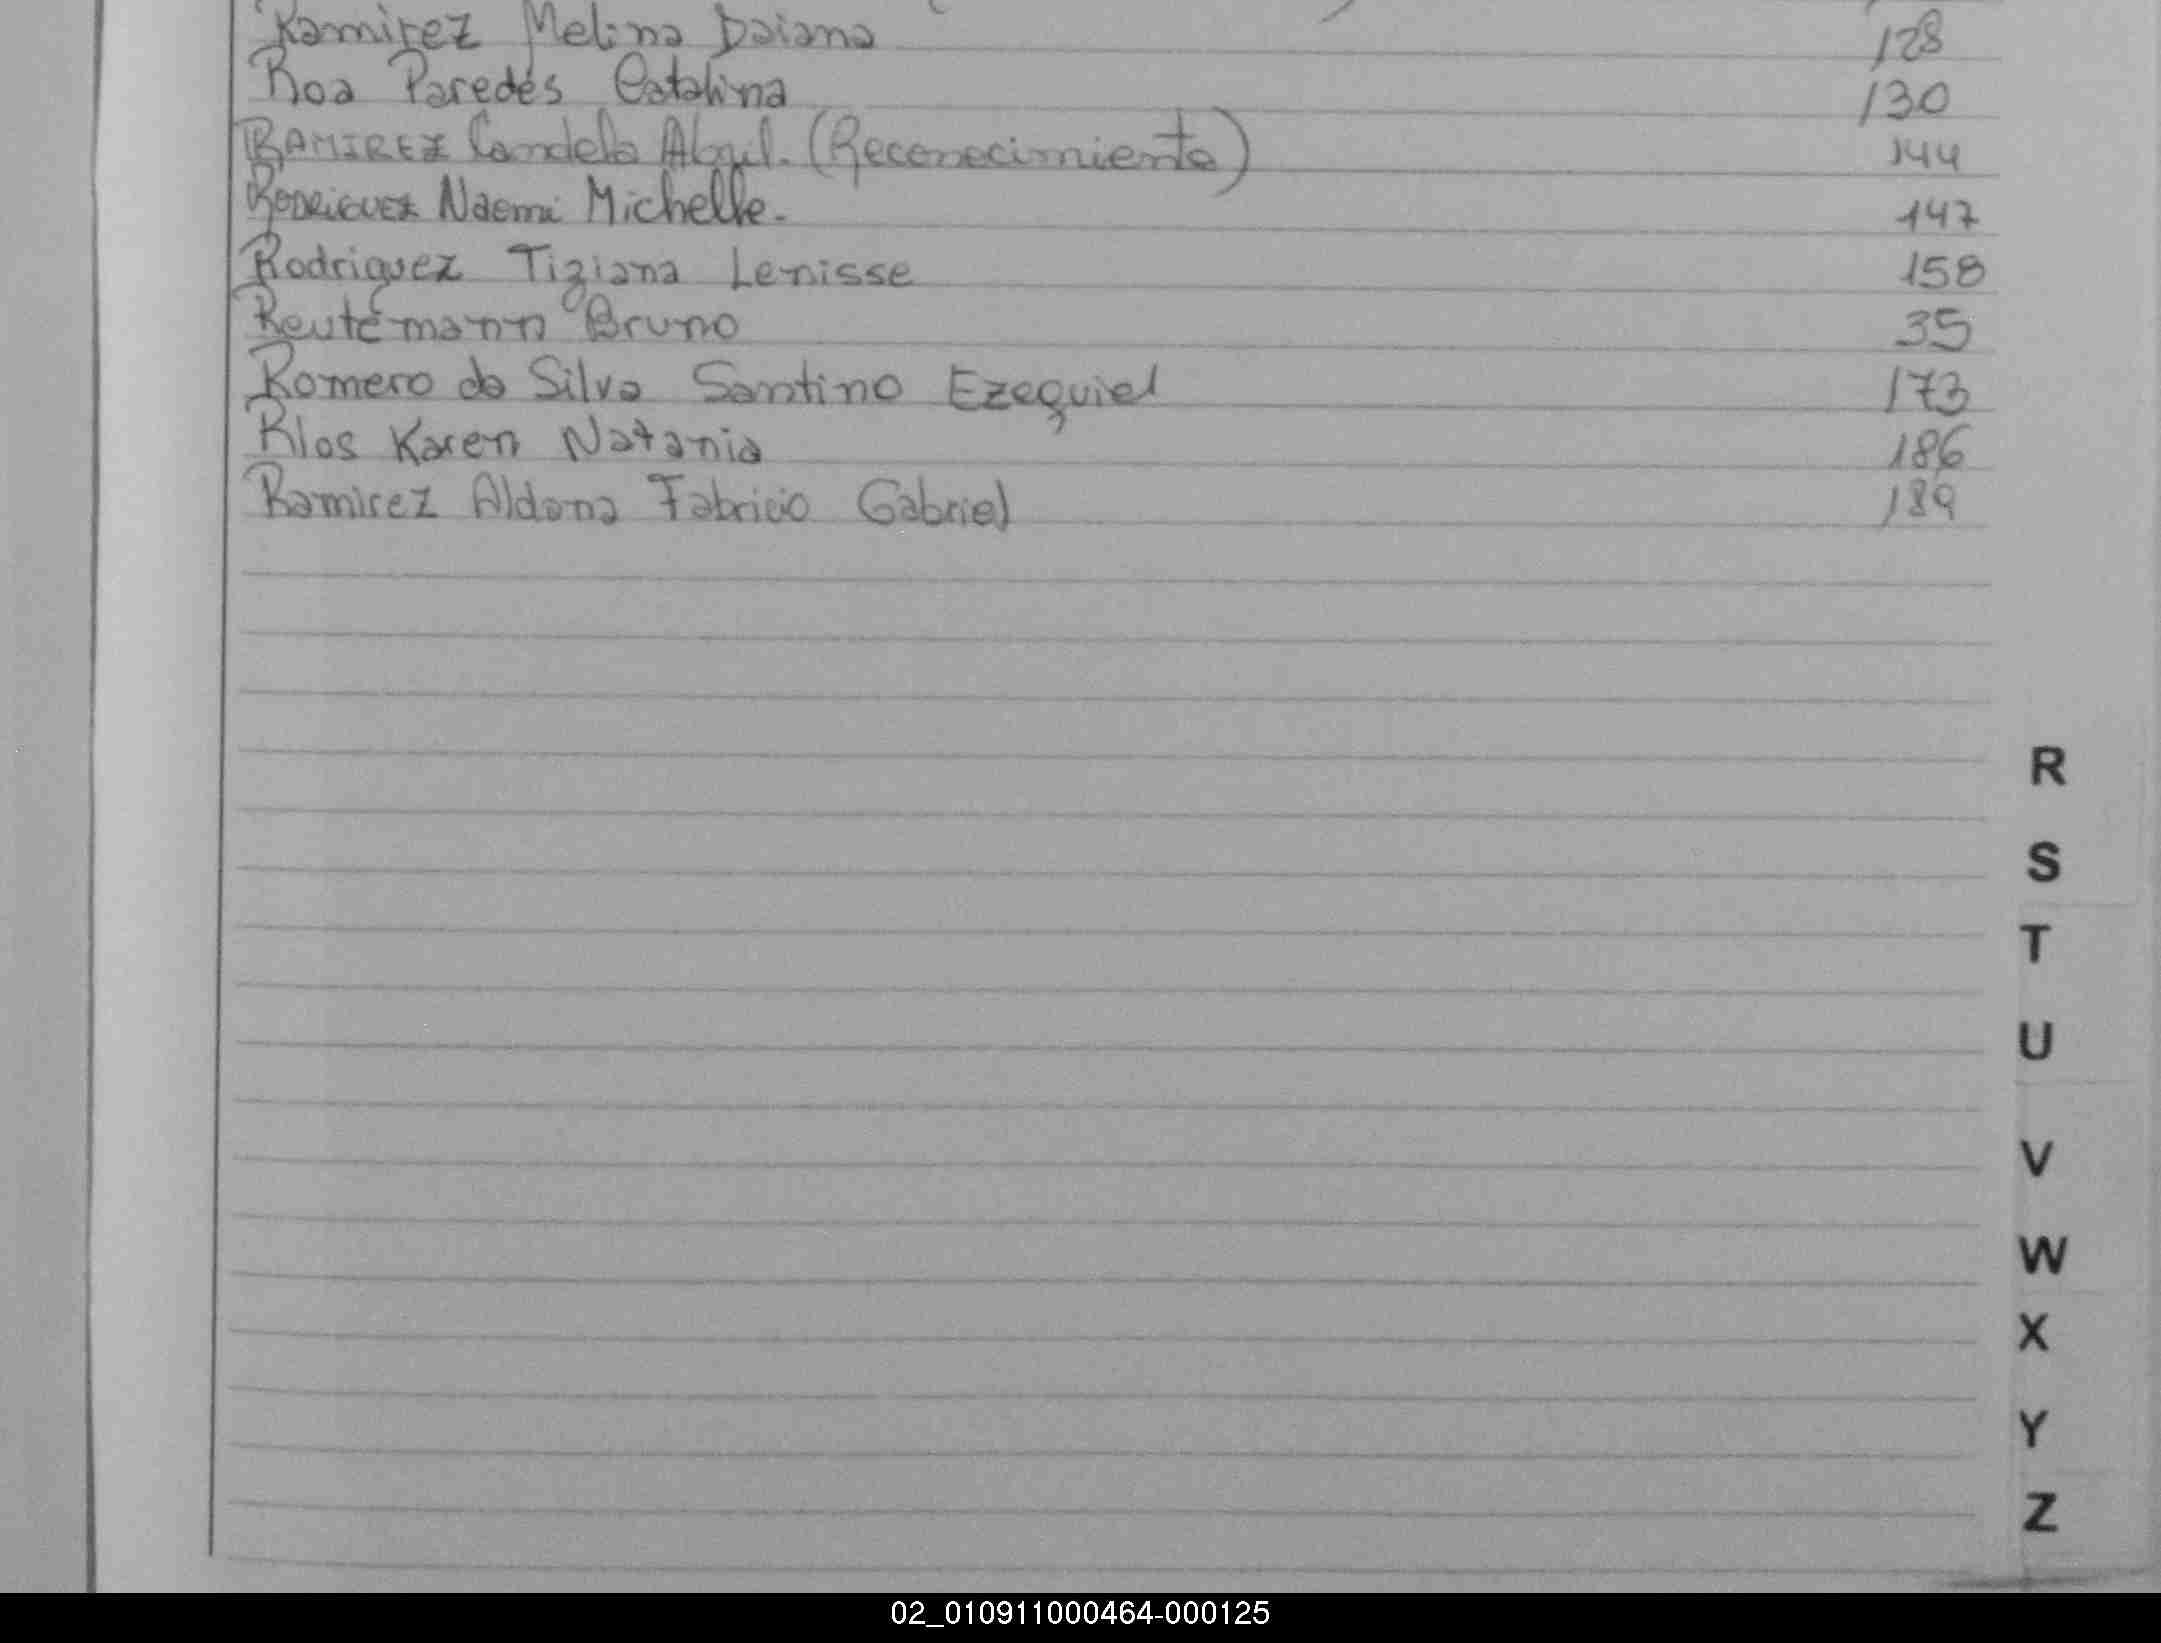 Ramirez Melina Daiana 128
Roa Paredes Catalina 130
RAMIREZ Candela Abgil. (Reconocimiento) 144
RODRIGUEZ Naemi Michelle. 147
Rodriguez Tiziana Lenisse 158
Reutemann Bruno 35
Romero da Silva Santino Ezequiel 173
Rios Karen Natania 186
Ramirez Aldana Fabricio Gabriel 189
R
S
T
U
V
W
X
Y
Z
02_010911000464-000125